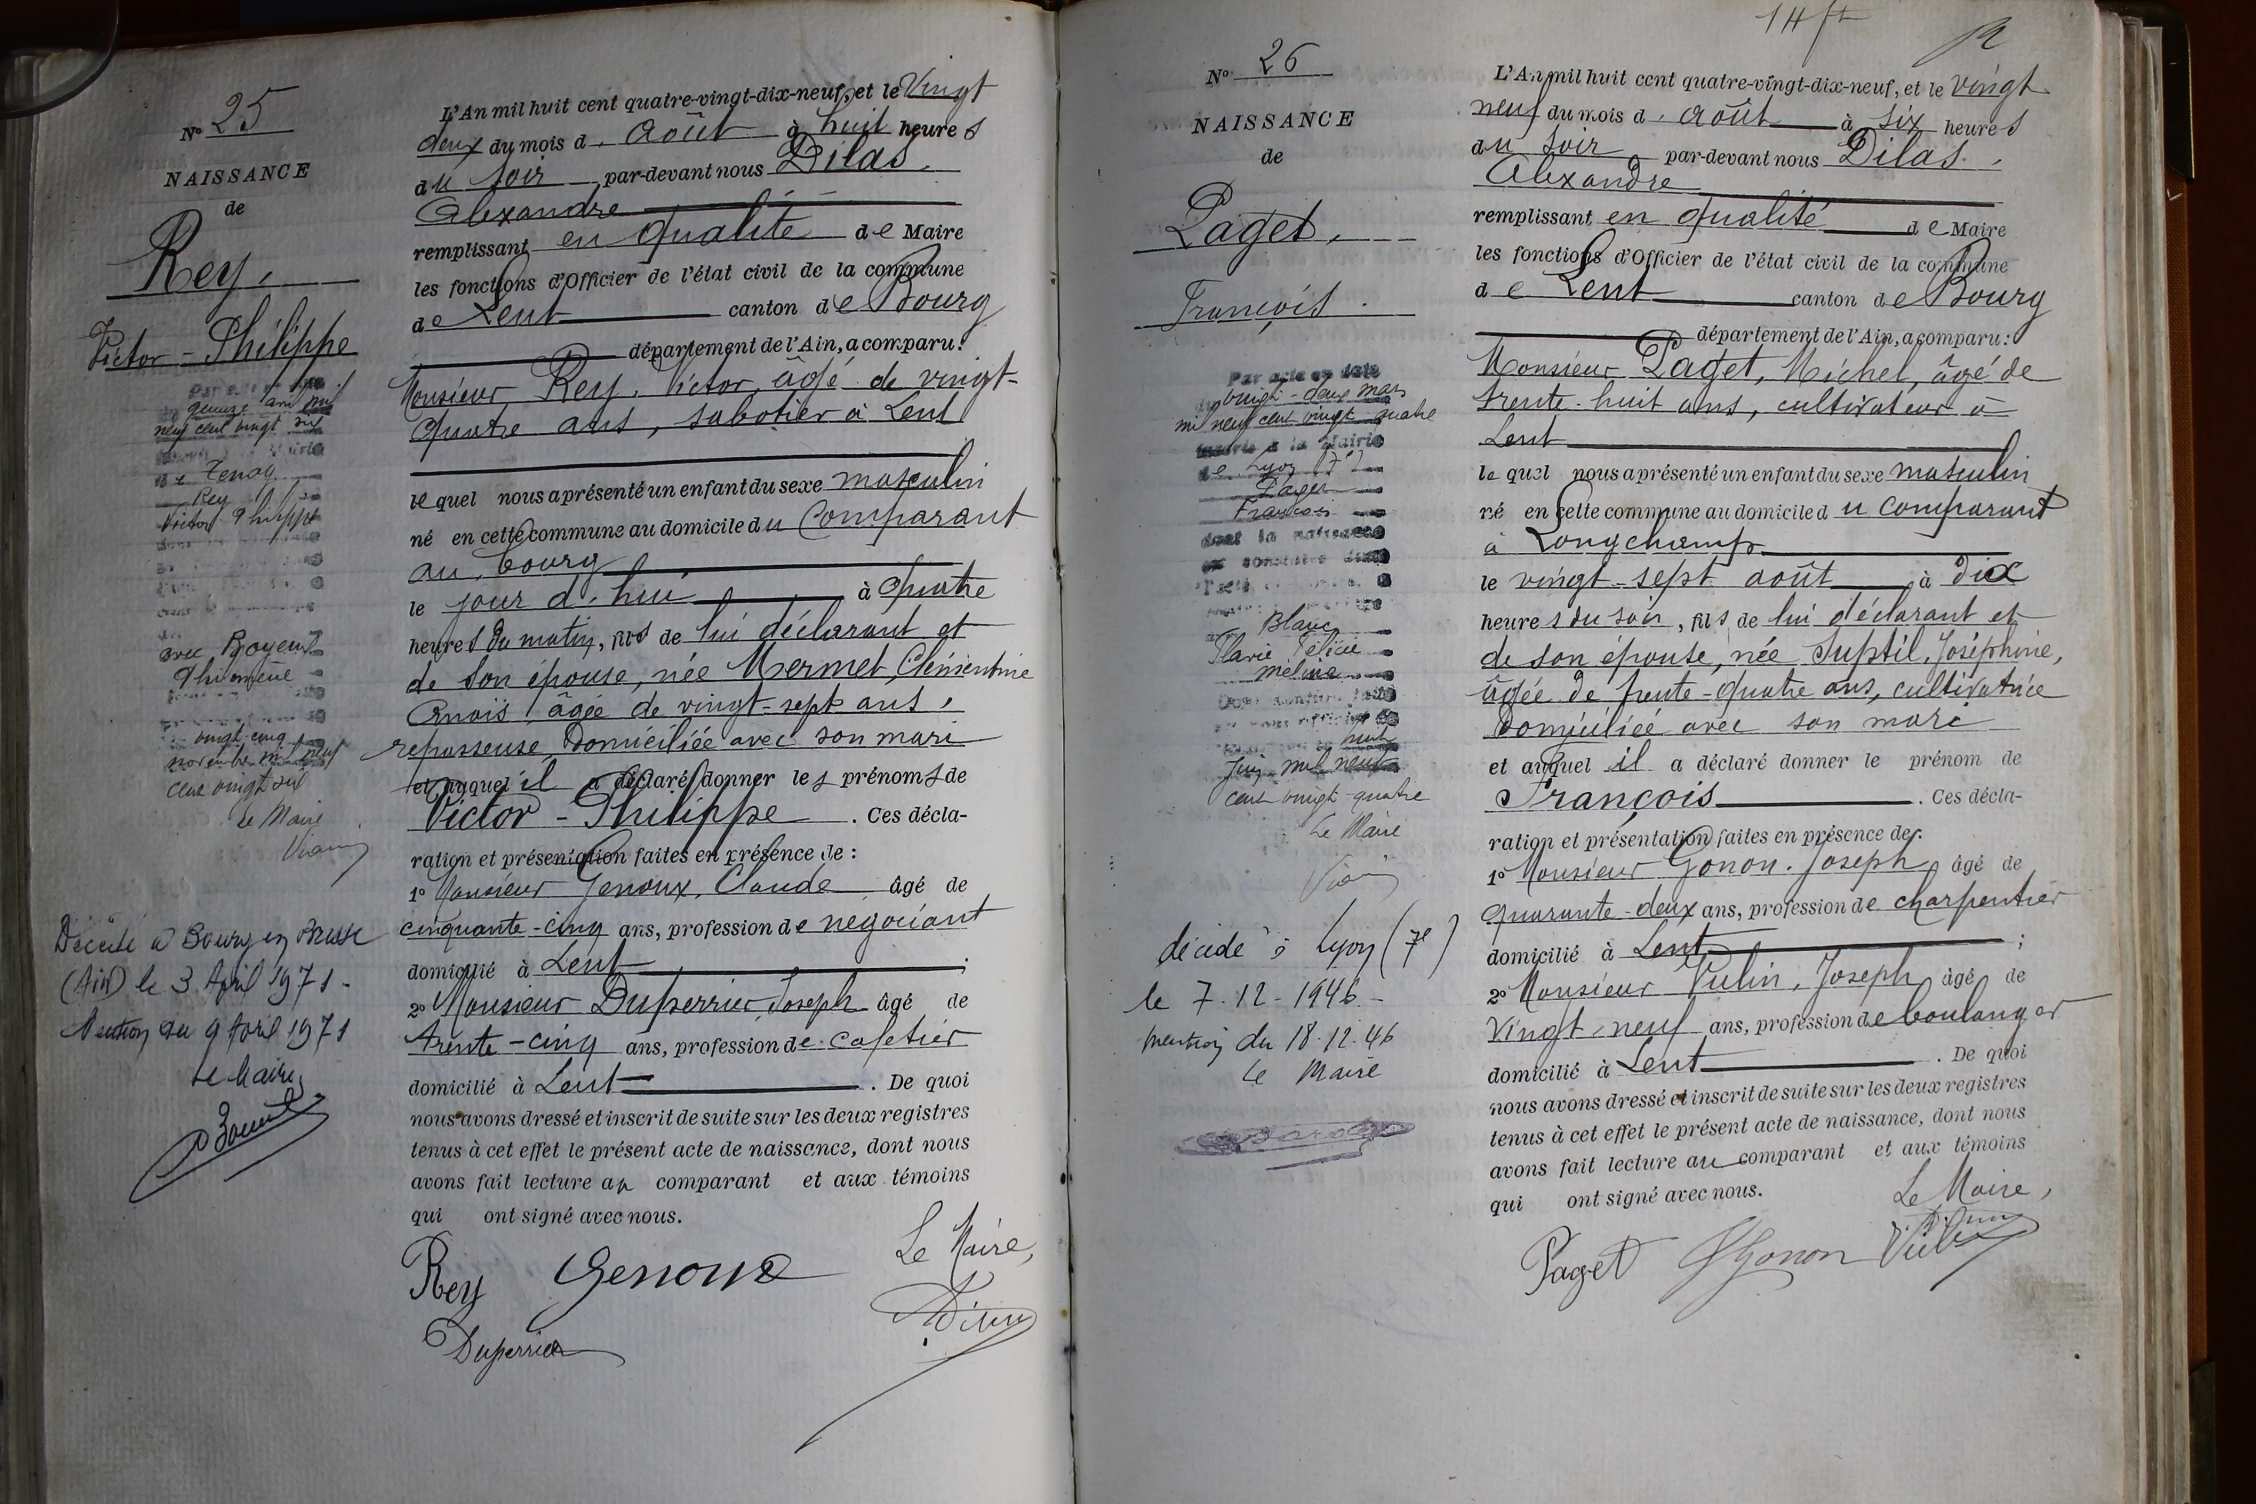 N° 25
NAISSANCE
de
Rey,
Victor-Philippe
quinze
neuf cent vingt six
de Tenay
Rey
Victor Philippe
avec Boyeux
Philomène
vingt cinq
novembre mil neuf
cent vingt six
Le Maire
Décédé à Bourg en Bresse
(Ain) le 3 April 1971-
Mention du 9 Avril 1971
Le Maire,
L'An mil huit cent quatre-vingt-dix-neuf, et le Vingt
deux du mois d. Août à huit heures
du soir par-devant nous Dilas,
Alexandre
remplissant en qualité de Maire
les fonctions d'Officier de l'état civil de la commune
de Lent canton de Bourg
département de l'Ain, a comparu:
Monsieur Rey, Victor, âgé de vingt-
quatre ans, sabotier à Lent
lequel nous a présenté un enfant du sexe masculin
né en cette commune au domicile du Comparant
au bourg
le jour d'hui à quatre
heures du matin, fils de lui déclarant et
de son épouse, née Mermet, Clémentine
Anaïs, âgée de vingt-sept ans,
repasseuse, domiciliée avec son mari
et auquel il a déclaré donner les prénoms de
Victor-Philippe. Ces décla-
ration et présentation faites en présence de:
1° Monsieur Genoux, Claude âgé de
cinquante-cinq ans, profession de négociant
domicilié à Lent;
2° Monsieur Duperrier, Joseph âgé de
trente-cinq ans, profession de cafetier
domicilié à Lent. De quoi
nous avons dressé et inscrit de suite sur les deux registres
tenus à cet effet le présent acte de naissance, dont nous
avons fait lecture au comparant et aux témoins
qui ont signé avec nous.
Le Maire,
Rey Genoux
Duperrier
N° 26
NAISSANCE
de
Paget,
François.
Par acte en date
du vingt-deux mars
mil neuf cent vingt quatre
inscrit à la Mairie
de Lyon (7e)
Paget
François
dont la naissance
est constatée dans
Blanc
Marie Félicie
Mélina
huit
Juin mil neuf
cent vingt-quatre
Le Maire
décédé à Lyon (7e)
le 7.12-1946-
mention du 18.12.46
Le Maire
L'An mil huit cent quatre-vingt-dix-neuf, et le vingt
neuf du mois d. Août à six heures
du soir par-devant nous Dilas.,
Alexandre
remplissant en qualité de Maire
les fonctions d'Officier de l'état civil de la commune
de Lent canton de Bourg
département de l'Ain, a comparu:
Monsieur Paget, Michel, âgé de
trente-huit ans, cultivateur à
Lent
lequel nous a présenté un enfant du sexe masculin
né en cette commune au domicile du comparant
à Longchamp
le vingt-sept août à dix
heures du soir, fils de lui déclarant et
de son épouse, née Suptil, Joséphine,
âgée de trente-quatre ans, cultivatrice
domiciliée avec son mari
et auquel il a déclaré donner le prénom de
François. Ces décla-
ration et présentation faites en présence de:
1° Monsieur Gonon, Joseph âgé de
quarante-deux ans, profession de charpentier
domicilié à Lent;
2° Monsieur Vulin, Joseph âgé de
vingt-neuf ans, profession de boulanger
domicilié à Lent. De quoi
nous avons dressé et inscrit de suite sur les deux registres
tenus à cet effet le présent acte de naissance, dont nous
avons fait lecture au comparant et aux témoins
qui ont signé avec nous.
Le Maire,
Paget Gonon Vulin